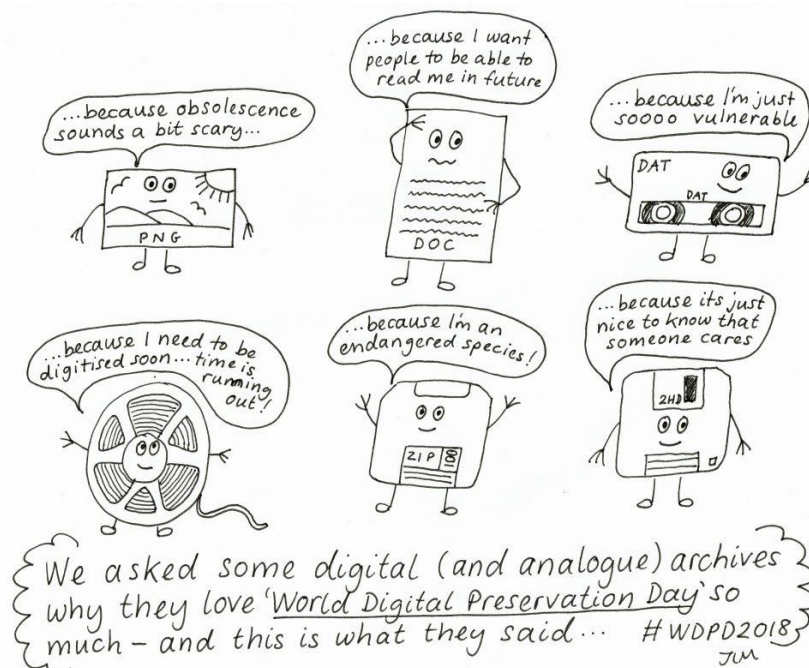 ...because obsolescence
sounds a bit scary...
PNG
...because I want
people to be able to
read me in future
DOC
...because I'm just
soooo vulnerable
DAT
DAT
...because I need to be
digitised soon...time is
running
out!
...because I'm an
endangered species!
ZIP
100
...because its just
nice to know that
someone cares
2HD
We asked some digital (and analogue) archives
why they love 'World Digital Preservation Day' so
much – and this is what they said... #WDPD2018